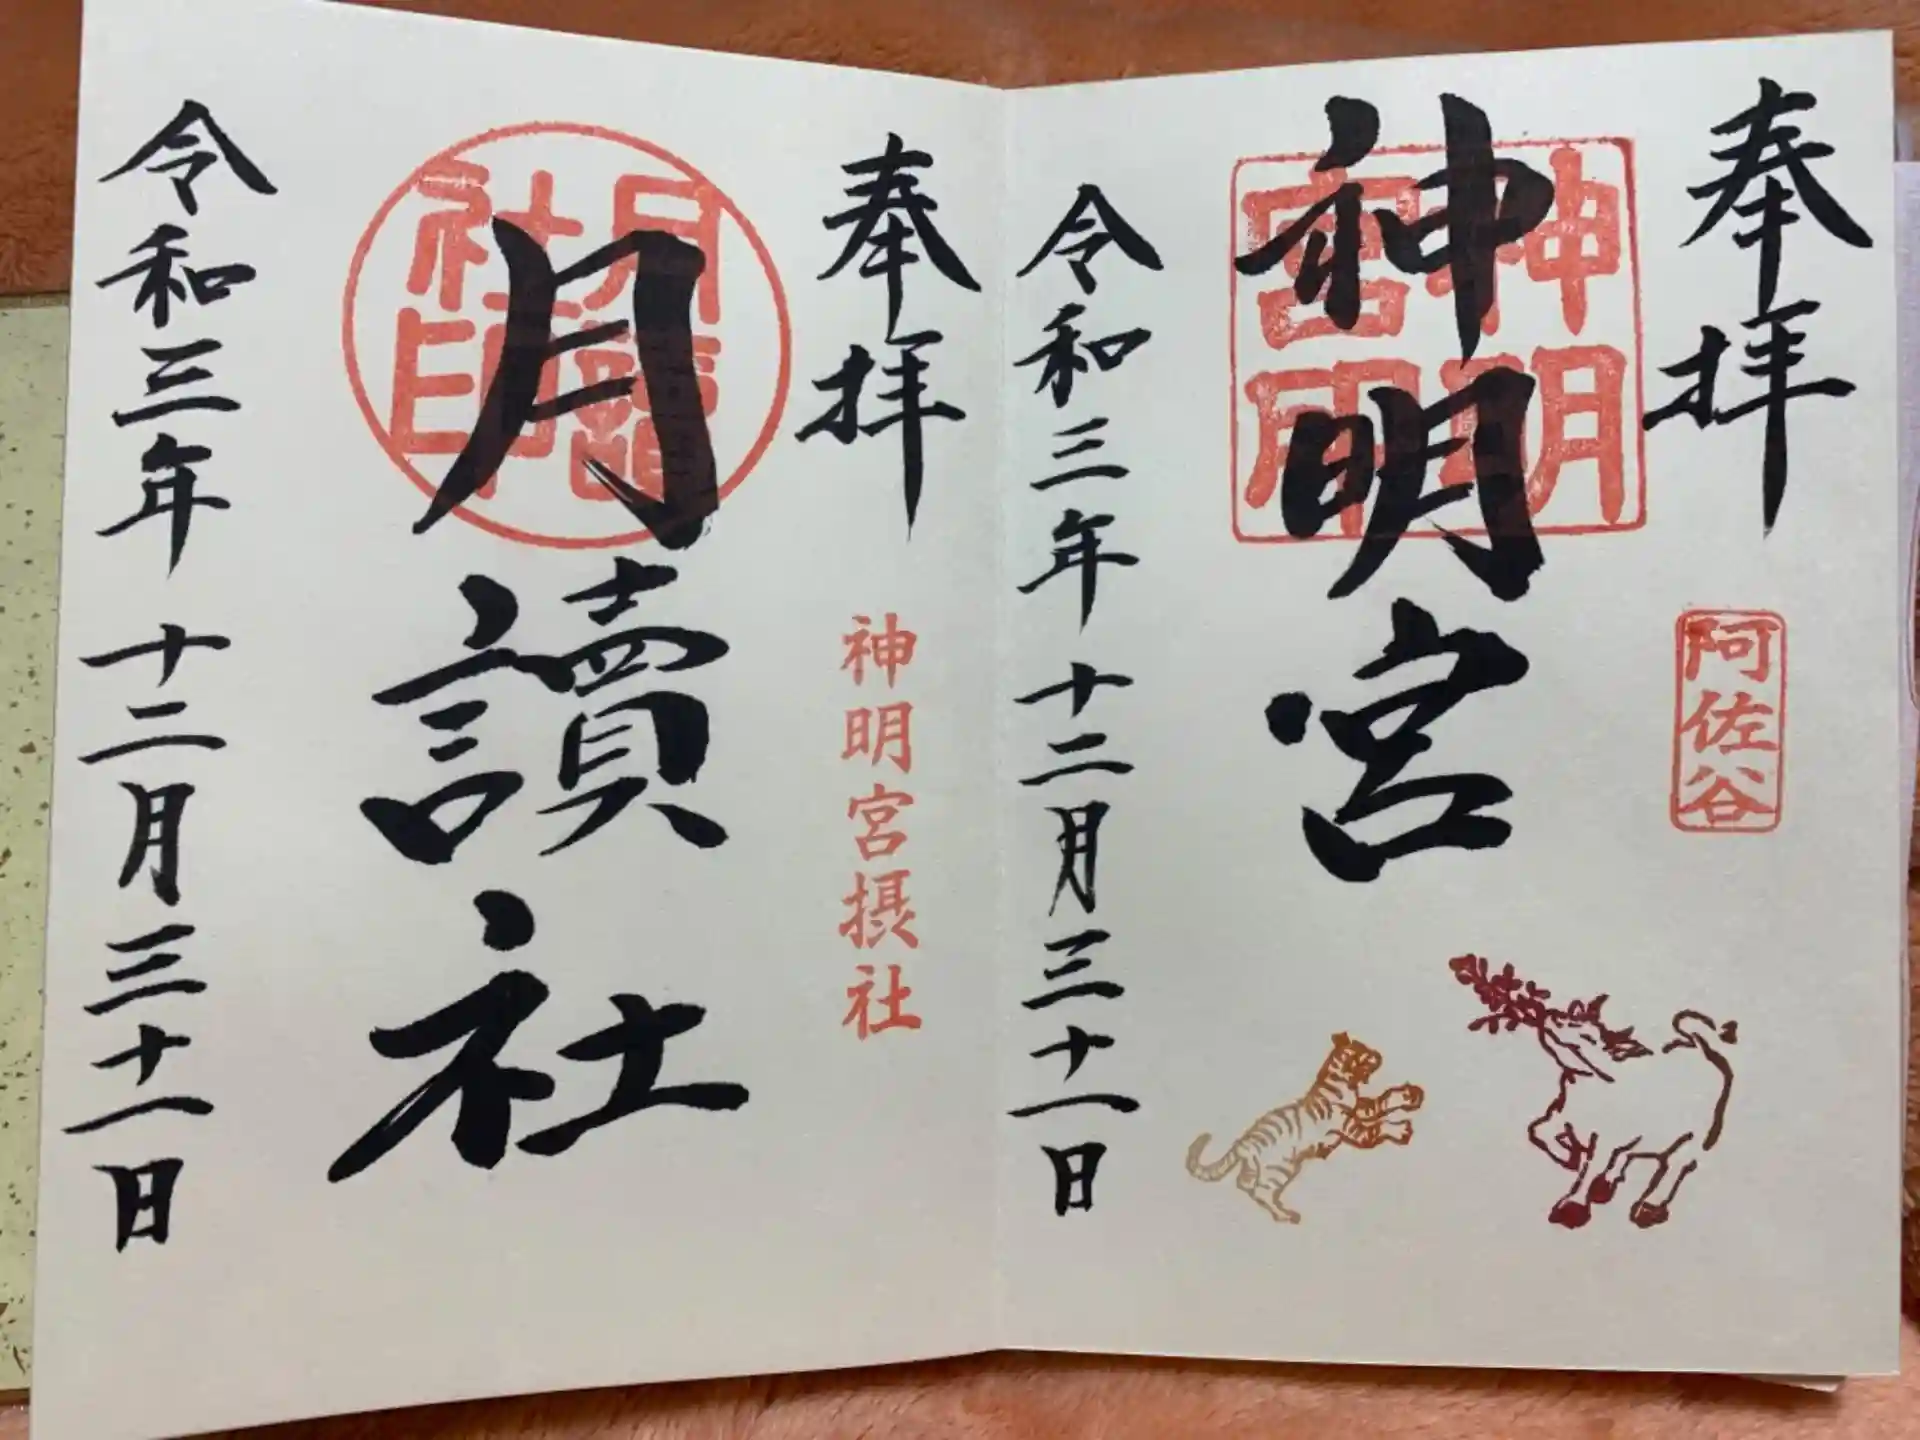 奉拝
阿佐谷
神明宮
神明宮印
令和三年十二月三十一日
奉拝
神明宮摂社
月讀社
月讀社印
令和三年十二月三十一日